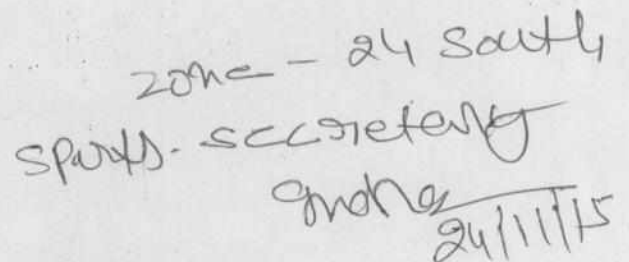 zone - 24 South
Sports. secretery
24/11/15